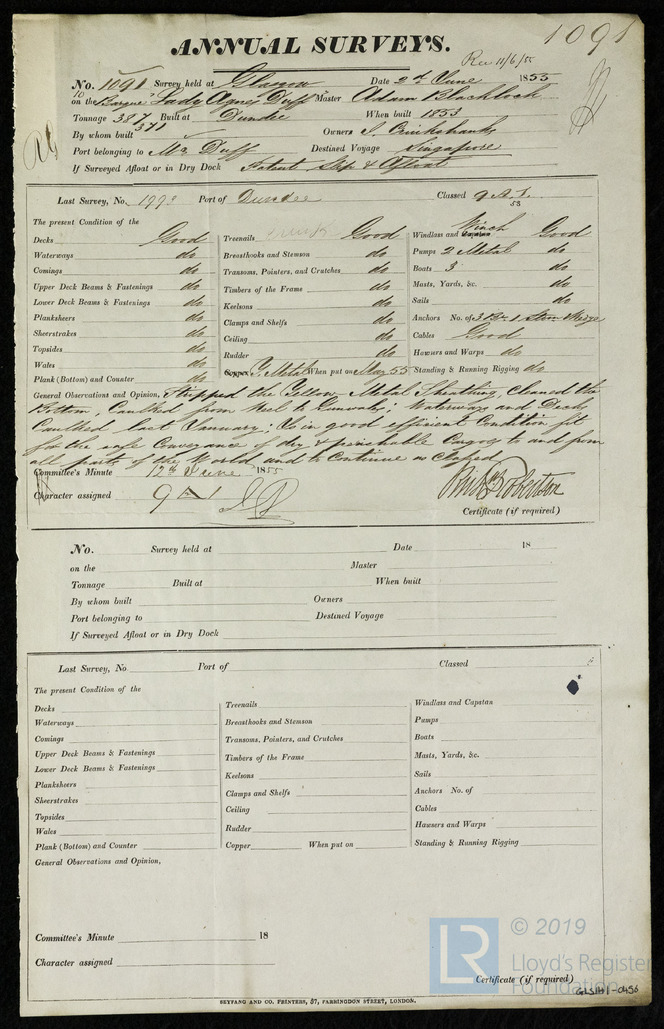 1091
ANNUAL SURVEYS.
Rec 11/6/55
No. 1091 Survey held at Glasgow Date 2nd June 1855
on the Barque "Lady Agnes Duff" Master Adam Blacklock
Tonnage 387 371 Built at Dundee When built 1853
By whom built Owners J. Cruikshanks
Port belonging to Mc Duff Destined Voyage Singapore
If Surveyed Afloat or in Dry Dock Patent Slip & Afloat
Last Survey, No. Port of Dundee Classed 9 A.1. 53
The present Condition of the
Decks Good Treenails Good Windlass and Winch Good
Waterways do Breasthooks and Stemson do Pumps 2 Metal do
Comings do Transoms, Pointers, and Crutches do Boats 3 do
Upper Deck Beams & Fastenings do Timbers of the Frame do Masts, Yards, &c. do
Lower Deck Beams & Fastenings do Keelsons do Sails do
Planksheers do Clamps and Shelfs do Anchors No. of 3
Sheerstrakes do Ceiling do Cables Good
Topsides do Rudder do Hawsers and Warps do
Wales do Y. Metal When put on May 55 Standing & Running Rigging do
Plank (Bottom) and Counter do
General Observations and Opinion, Stripped the Yellow Metal Sheathing, Cleaned the
Bottom, Caulked from Keel to Gunwale; Waterways and Deck
Caulked last January; Is in good efficient Condition fit
for the safe Conveyance of dry & perishable Cargoes to and from
all parts of the World and to Continue as Classed
Committee's Minute 12th June 1855
Character assigned 9 A 1
Robertson
Certificate (if required)
No. Survey held at Date 18
on the Master
Tonnage Built at When built
By whom built Owners
Port belonging to Destined Voyage
If Surveyed Afloat or in Dry Dock
Last Survey, No. Port of Classed
The present Condition of the
Decks Treenails Windlass and Capstan
Waterways Breasthooks and Stemson Pumps
Comings Transoms, Pointers, and Crutches Boats
Upper Deck Beams & Fastenings Timbers of the Frame Masts, Yards, &c.
Lower Deck Beams & Fastenings Keelsons Sails
Planksheers Clamps and Shelfs Anchors No. of
Sheerstrakes Ceiling Cables
Topsides Rudder Hawsers and Warps
Wales Copper When put on Standing & Running Rigging
Plank (Bottom) and Counter
General Observations and Opinion,
Committee's Minute 18
Character assigned
Certificate (if required)
LR © 2019
Lloyd's Register
Foundation
GLS141-0456
SEYFANG AND CO. PRINTERS, 57, FARRINGDON STREET, LONDON.